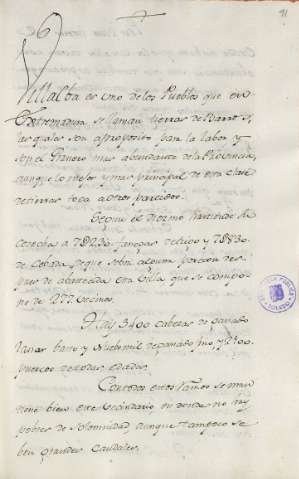 Villalba es uno de los Pueblos que en
Extremadura se llaman tierras de Barros,
las quales son aproposito para la labor y
son el Granero mas abundante de la Provincia,
aunque lo mejor y mas principal de esta clase
de tierras toca a otros partidos.
Segun el Diezmo partido de
cosecha a 7823 fanegas de trigo y
de cebada, de que sobra alguna porcion des-
pues de abastecida esta Villa que se compo-
ne de 277 vecinos.
Hay 3400 cabezas de ganado
lanar basto y de ganado fino y 2100
puercos de todas edades.
Con todos estos ramos se man-
tiene bien este vecindario en donde no hay
pobres de solemnidad, aunque tampoco se
ben grandes caudales.